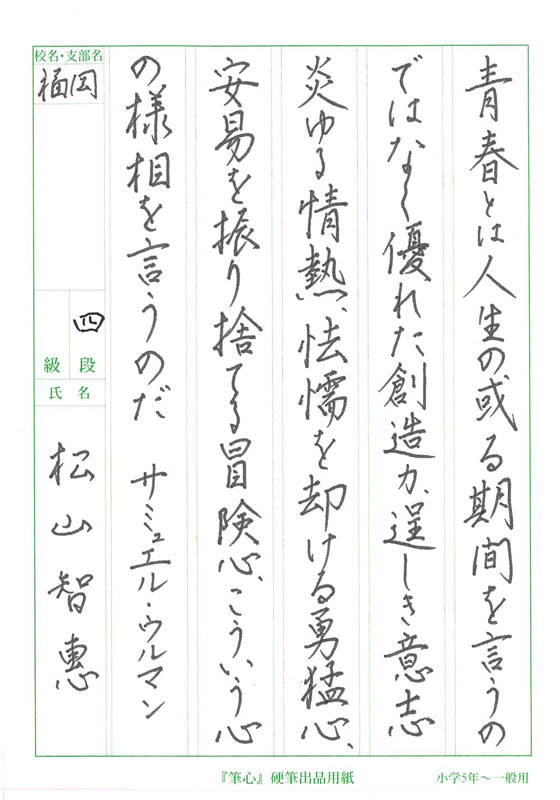 青春とは人生の或る期間を言うの
ではなく優れた創造力、逞しき意志
炎ゆる情熱、怯懦を却ける勇猛心、
安易を振り捨てる冒険心、こういう心
の様相を言うのだ　サミュエル・ウルマン
校名・支部名
福岡
四
級 段
氏 名
松山智惠
『筆心』硬筆出品用紙
小学5年～一般用